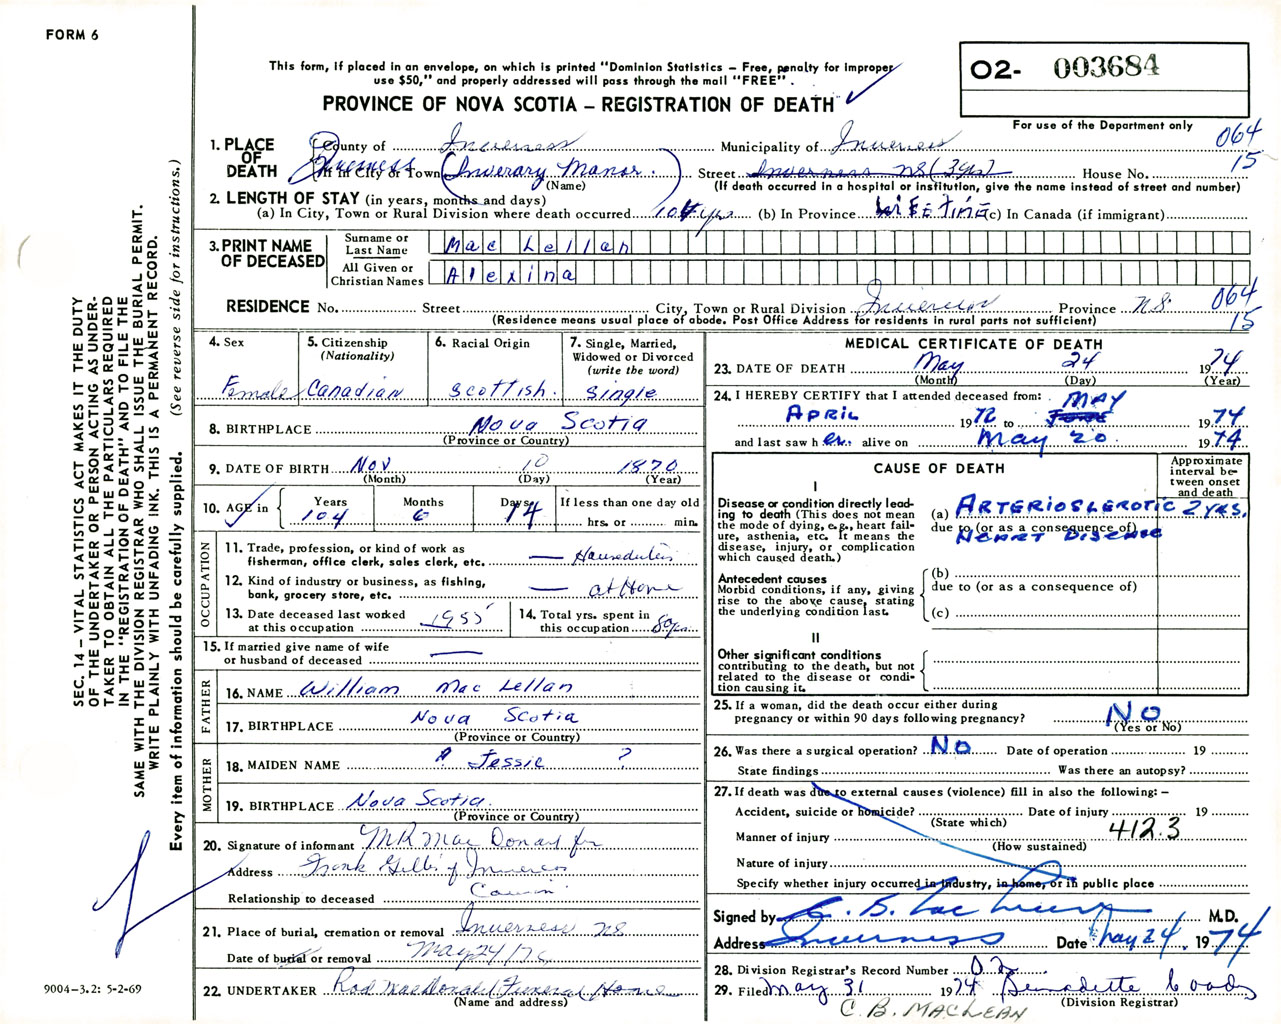 FORM 6
This form, if placed in an envelope, on which is printed "Dominion Statistics – Free, penalty for improper
use $50," and properly addressed will pass through the mail "FREE".
PROVINCE OF NOVA SCOTIA – REGISTRATION OF DEATH
O2- 003684
For use of the Department only
064
15
1. PLACE OF DEATH County of Inverness Municipality of Inverness
Inverness (If in City or Town) (Inverary Manor.) Street Inverness NS (3yrs) House No.
(Name) (If death occurred in a hospital or institution, give the name instead of street and number)
2. LENGTH OF STAY (in years, months and days)
(a) In City, Town or Rural Division where death occurred 104 yrs (b) In Province LIFETIME (c) In Canada (if immigrant)
3. PRINT NAME OF DECEASED
Surname or Last Name Mac Lellan
All Given or Christian Names Alexina
RESIDENCE No. Street City, Town or Rural Division Inverness Province N.S. 064
15
(Residence means usual place of abode. Post Office Address for residents in rural parts not sufficient)
4. Sex
Female
5. Citizenship (Nationality)
Canadian
6. Racial Origin
Scottish
7. Single, Married, Widowed or Divorced (write the word)
Single
8. BIRTHPLACE Nova Scotia
(Province or Country)
9. DATE OF BIRTH Nov 10 1870
(Month) (Day) (Year)
10. AGE in Years Months Days If less than one day old
104 6 14 hrs. or min.
OCCUPATION
11. Trade, profession, or kind of work as
fisherman, office clerk, sales clerk, etc. — Houseduties
12. Kind of industry or business, as fishing,
bank, grocery store, etc. — at Home
13. Date deceased last worked
at this occupation 1955
14. Total yrs. spent in
this occupation 80yrs.
15. If married give name of wife
or husband of deceased —
FATHER
16. NAME William Mac Lellan
17. BIRTHPLACE Nova Scotia
(Province or Country)
MOTHER
18. MAIDEN NAME ? Jessie ?
19. BIRTHPLACE Nova Scotia.
(Province or Country)
20. Signature of informant MR Mac Donald for
Address Frank Gillis of Inverness
Relationship to deceased Cousin
21. Place of burial, cremation or removal Inverness NS
Date of burial or removal May 24/74
22. UNDERTAKER Rod MacDonald Funeral Home
(Name and address)
MEDICAL CERTIFICATE OF DEATH
23. DATE OF DEATH May 24 1974
(Month) (Day) (Year)
24. I HEREBY CERTIFY that I attended deceased from: MAY
APRIL 1972 to JUNE 1974
and last saw her alive on May 20 1974
CAUSE OF DEATH
Approximate interval between onset and death
I
Disease or condition directly leading to death (This does not mean
the mode of dying, e.g., heart failure, asthenia, etc. It means the
disease, injury, or complication
which caused death.)
(a) ARTERIOSLEROTIC 2 yrs.
due to (or as a consequence of)
HEART DISEASE
Antecedent causes
Morbid conditions, if any, giving
rise to the above cause, stating
the underlying condition last.
(b)
due to (or as a consequence of)
(c)
II
Other significant conditions
contributing to the death, but not
related to the disease or condition causing it.
25. If a woman, did the death occur either during
pregnancy or within 90 days following pregnancy? NO
(Yes or No)
26. Was there a surgical operation? NO Date of operation 19
State findings Was there an autopsy?
27. If death was due to external causes (violence) fill in also the following: –
Accident, suicide or homicide? Date of injury 19
(State which)
Manner of injury 412.3
(How sustained)
Nature of injury
Specify whether injury occurred in industry, in home, or in public place
Signed by C. B. MacLean M.D.
Address Inverness Date May 24, 1974
28. Division Registrar's Record Number 02
29. Filed May 31 1974 Bernadette Coady
(Division Registrar)
C. B. MACLEAN
SEC. 14 – VITAL STATISTICS ACT MAKES IT THE DUTY
OF THE UNDERTAKER OR PERSON ACTING AS UNDER-
TAKER TO OBTAIN ALL THE PARTICULARS REQUIRED
IN THE "REGISTRATION OF DEATH" AND TO FILE THE
SAME WITH THE DIVISION REGISTRAR WHO SHALL ISSUE THE BURIAL PERMIT.
WRITE PLAINLY WITH UNFADING INK. THIS IS A PERMANENT RECORD.
Every item of information should be carefully supplied. (See reverse side for instructions.)
9004-3.2: 5-2-69